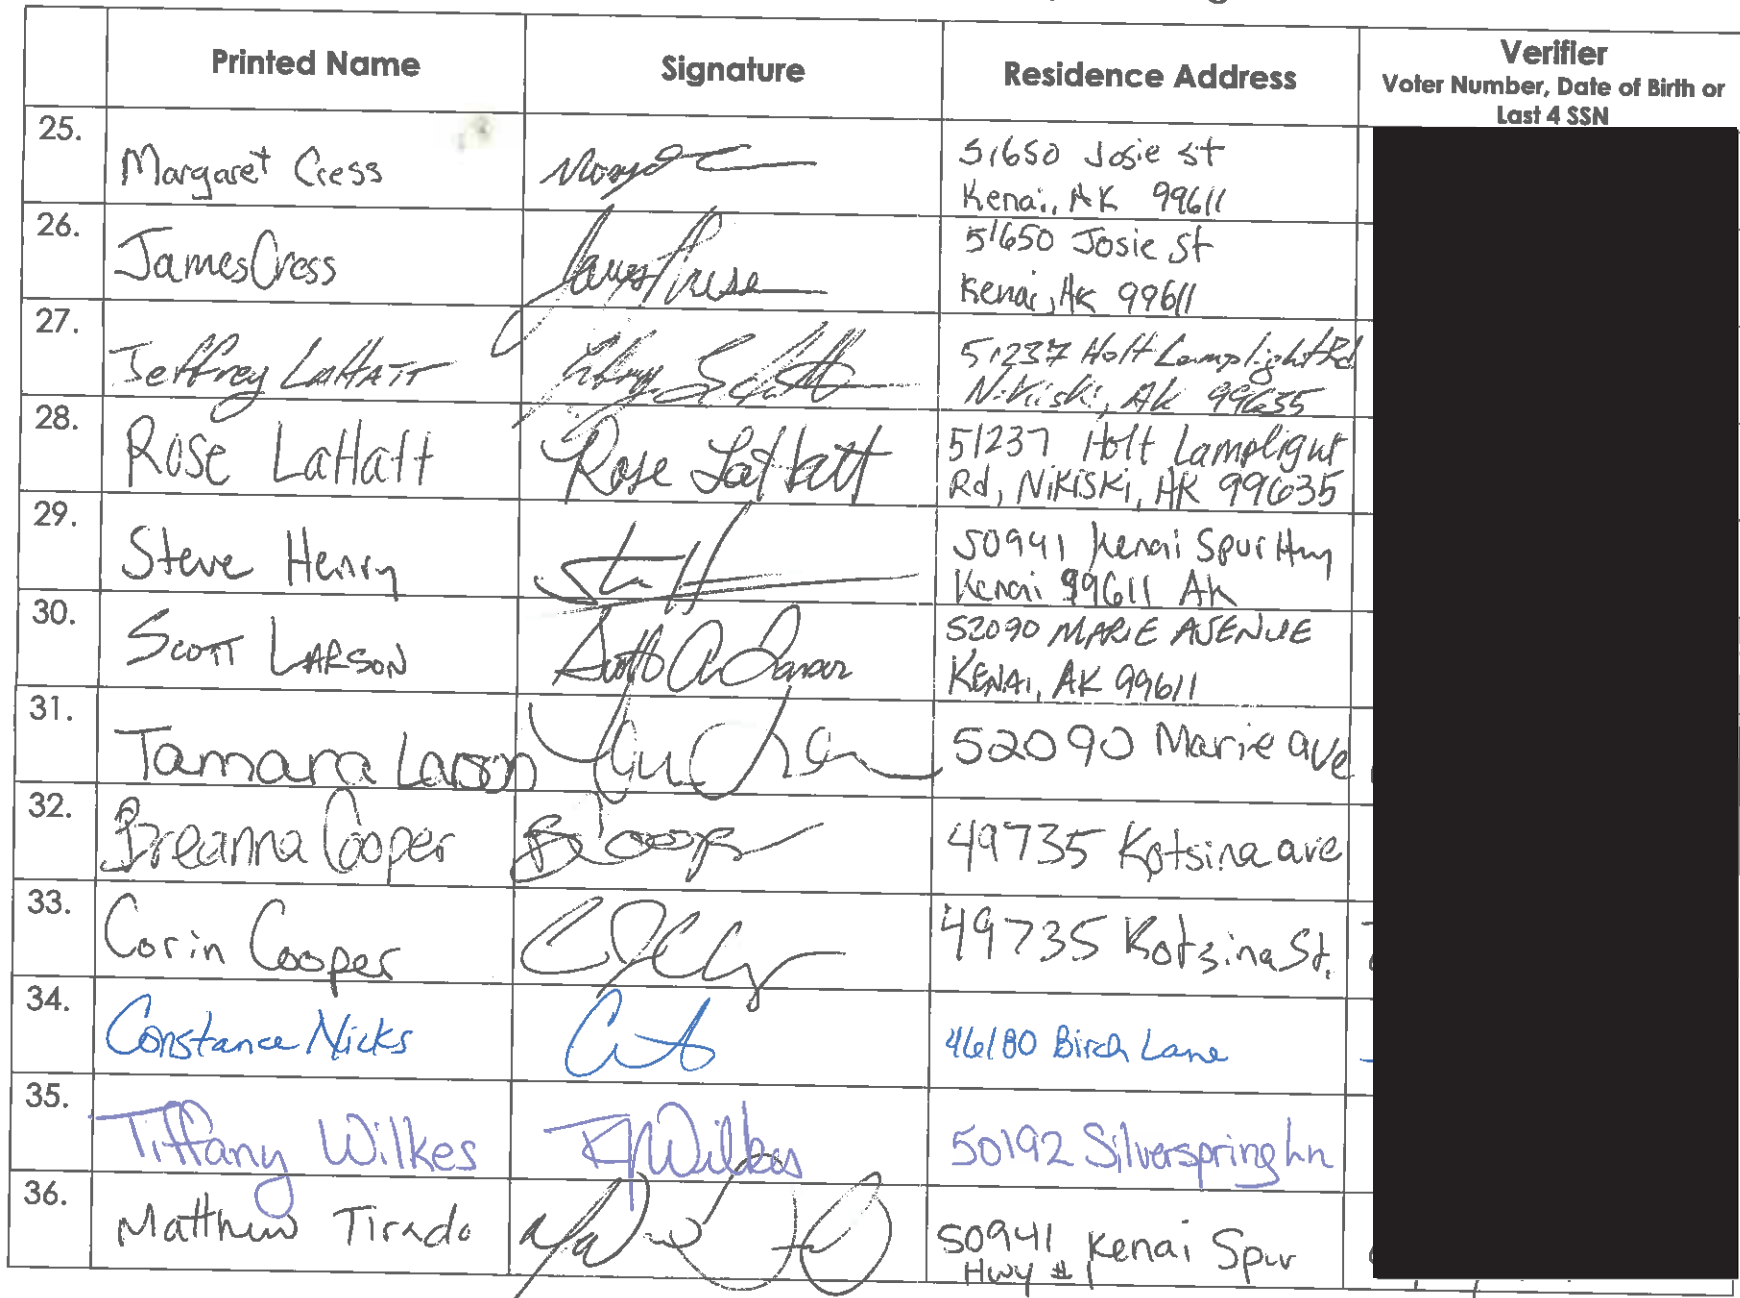 Printed Name Signature Residence Address Verifier
Voter Number, Date of Birth or
Last 4 SSN
25. Margaret Cress 51650 Josie st
Kenai, AK 99611
26. James Cress 51650 Josie St
Kenai, AK 99611
27. Jeffrey LaHatt 51237 Holt Lamplight Rd
Nikiski, AK 99635
28. Rose LaHatt Rose LaHatt 51237 Holt Lamplight
Rd, Nikiski, AK 99635
29. Steve Henry 50941 Kenai Spur Hwy
Kenai 99611 AK
30. Scott LARSON Scott A Larson 52090 MARIE AVENUE
KENAI, AK 99611
31. Tamara Larson 52090 Marie ave
32. Breanna Cooper B Cooper 49735 Kotsina ave
33. Corin Cooper 49735 Kotsina St.
34. Constance Nicks 46180 Birch Lane
35. Tiffany Wilkes Wilkes 50192 Silverspring Ln
36. Matthew Tirado 50941 Kenai Spur
Hwy #1